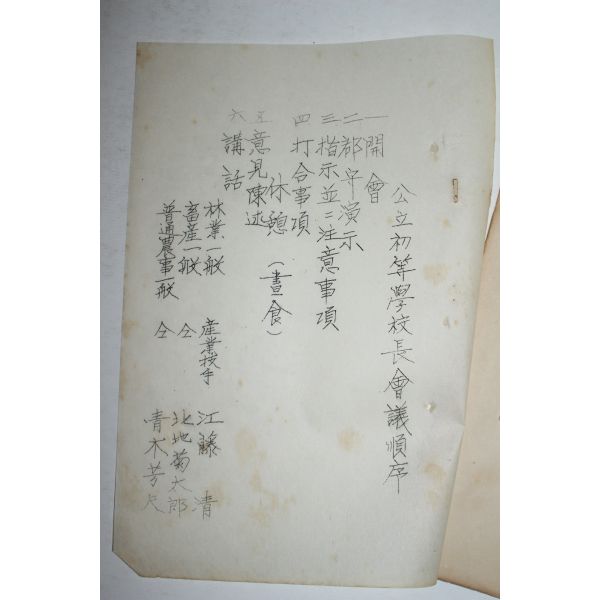 公立初等學校長會議順序
一 開會
二 郡守演示
三 指示並ニ注意事項
四 打合事項
休憩（晝食）
五 意見陳述
六 講話
林業一般 産業技手 江藤 清
畜産一般 仝 北地菊太郎
普通農事一般 仝 青木芳